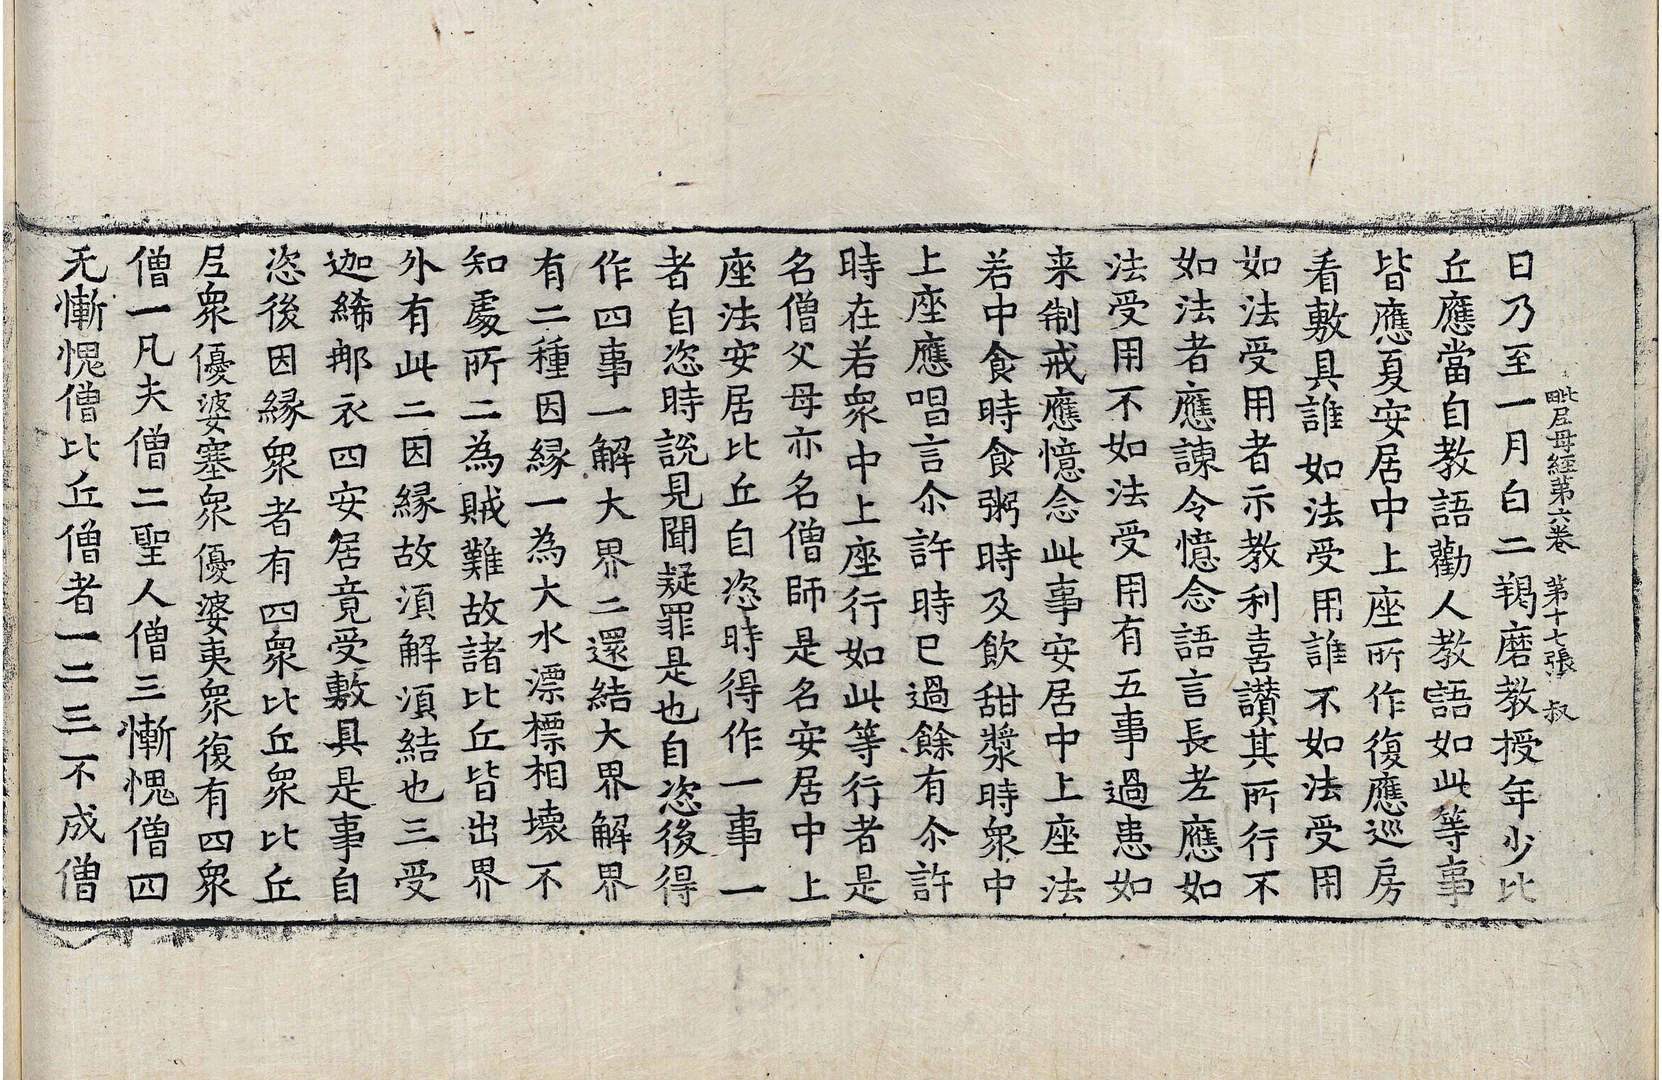 毗尼母經第六卷 第十七張 叔
日乃至一月白二羯磨教授年少比
丘應當自教語勸人教語如此等事
皆應夏安居中上座所作復應巡房
看敷具誰如法受用誰不如法受用
如法受用者示教利喜讃其所行不
如法者應諫令憶念語言長老應如
法受用不如法受用有五事過患如
来制戒應憶念此事安居中上座法
若中食時食粥時及飲甜漿時衆中
上座應唱言尒許時已過餘有尒許
時在若衆中上座行如此等行者是
名僧父母亦名僧師是名安居中上
座法安居比丘自恣時得作一事一
者自恣時説見聞疑罪是也自恣後得
作四事一解大界二還結大界解界
有二種因縁一為大水漂標相壞不
知處所二為賊難故諸比丘皆出界
外有此二因縁故湏解湏結也三受
迦絺那衣四安居竟受敷具是事自
恣後因縁衆者有四衆比丘衆比丘
尼衆優婆塞衆優婆夷衆復有四衆
僧一凡夫僧二聖人僧三慚愧僧四
无慚愧僧比丘僧者一二三不成僧